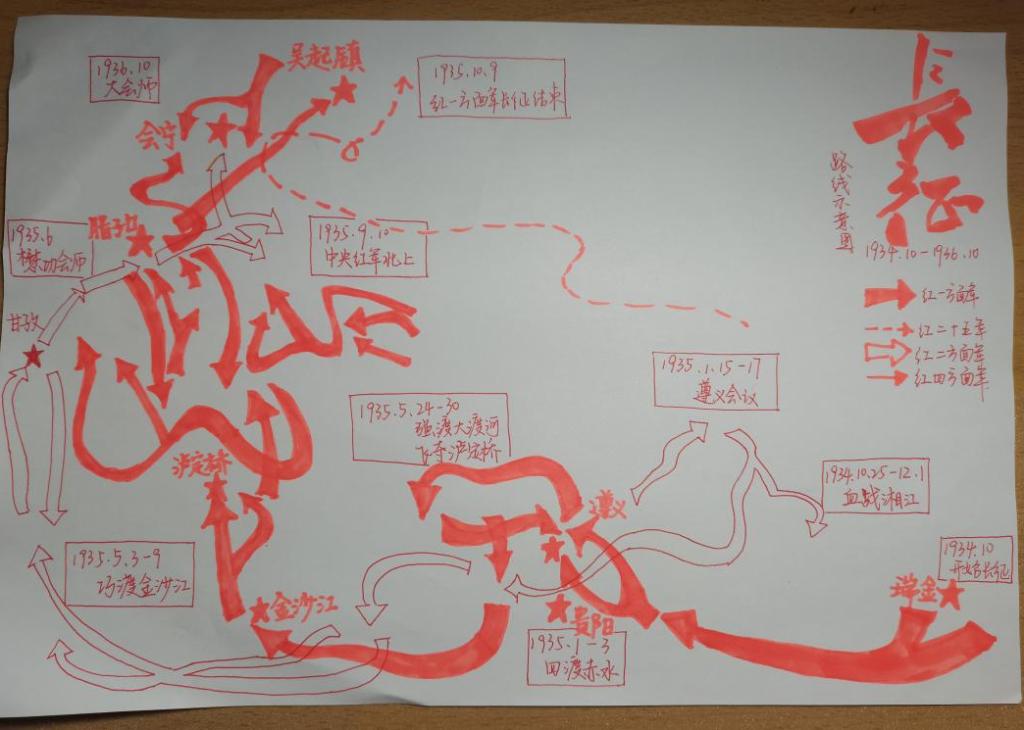 长征
路线示意图
1934.10-1936.10
红一方面军
红二十五军
红二方面军
红四方面军
1936.10
大会师
吴起镇
1935.10.9
红一方面军长征结束
会宁
腊子口
1935.6
懋功会师
1935.9.10
中央红军北上
甘孜
1935.1.15-17
遵义会议
1935.5.24-30
强渡大渡河
飞夺泸定桥
泸定桥
1934.10.25-12.1
血战湘江
遵义
1935.5.3-9
巧渡金沙江
1934.10
开始长征
瑞金
金沙江
贵阳
1935.1-3
四渡赤水